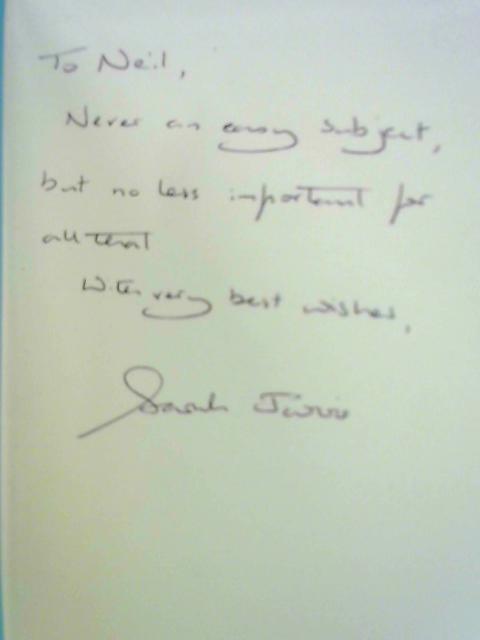 To Neil,
Never an easy subject,
but no less important for
all that
With very best wishes,
Sarah Jarvis